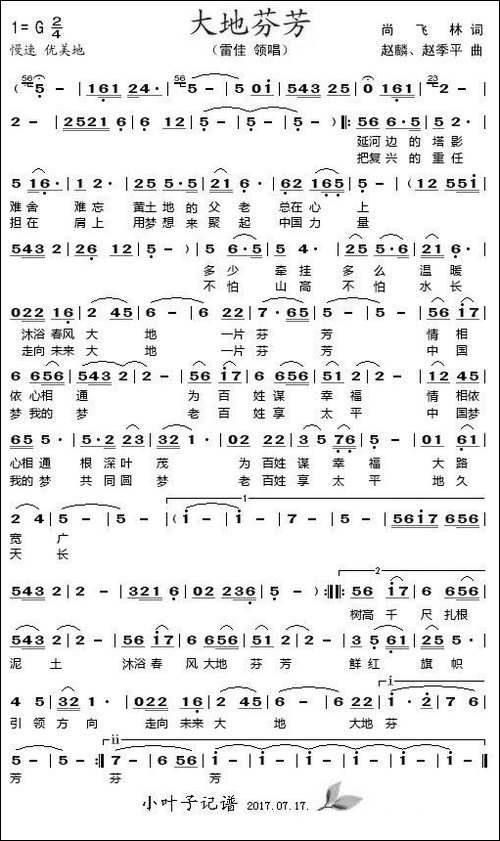 大地芬芳
1=G 2/4
慢速 优美地
(雷佳 领唱)
尚飞林 词
赵麟、赵季平 曲
( 56 5· - | 161 24· | 56 5 - | 5 - | 543 243 25 | 0 161 | 23 2 - |
2 - | 2521 6 | 6 6 12 | 5 - | 5 - ) ‖: 56 6·5 | 52· |
延河 边 的 塔 影
把复 兴 的 重 任
5 16· | 1 2· | 25 5·5 | 21 6· | 62 165 | 5 - | 12 551 |
难舍 难忘 黄土 地 的 父 老 总在 心 上
担在 肩上 用梦 想 来 聚 起 中国 力 量
543 2 | 26 12 | 5 - ) | 5 6·5 | 5 2· | 25 5·6 | 21 6 |
多 少 牵 挂 多 么 温 暖
不 怕 山 高 不 怕 水 长
022 16 | 2 45 | 6 - | 6 22 | 7·65 | 5 - | 5 - | 56 17 |
沐浴 春风 大 地 一片 芬 芳 情 相
走向 未来 大 地 一片 芬 芳 中 国
6 656 | 543 2 | 2 - | 56 17 | 6 656 | 351 | 2 - | 2 - | 56 17 | 6 656 |
依 心相 通 为 百 姓 谋 幸 福 情 相依
梦 我的 梦 老 百 姓 享 太 平 中 国梦
65·3 | 5·2 23 | 32 1· | 02 22 | 3 5 76 | 5 - | 5 - | 01 61 |
心相 通 根 深 叶 茂 为 百姓 谋 幸 福 大 路
我的 梦 共 同 圆 梦 老 百姓 享 太 平 地 久
1
2 4 | 5 - | 5 - | ( 1 - | 1 - | 7 - | 5 - | 5617 656 |
宽 广
天 长
2
543 2 | 2 - | 321 6 | 02 236 | 5 - | 5 - ) :‖: 56 17 | 6 656 |
树高 千 尺 扎根
543 2 | 2 - | 56 17 | 6 656 | 51 | 2 - | 2 - | 3 5 61 | 25 5 |
泥 土 沐浴 春 风 大地 芬 芳 鲜 红 旗 帜
i
4 5 | 32 1· | 022 16 | 2 45 | 6 - | 6 22 | 1·2 | 7 6 |
引 领 方 向 走向 未来 大 地 大地 芬
ii
5 - | 5 - :‖ 7 - | 7 6 | 5 - | 5 - | 5 - | 5 - ‖
芳 芬 芳
小叶子记谱 2017.07.17.